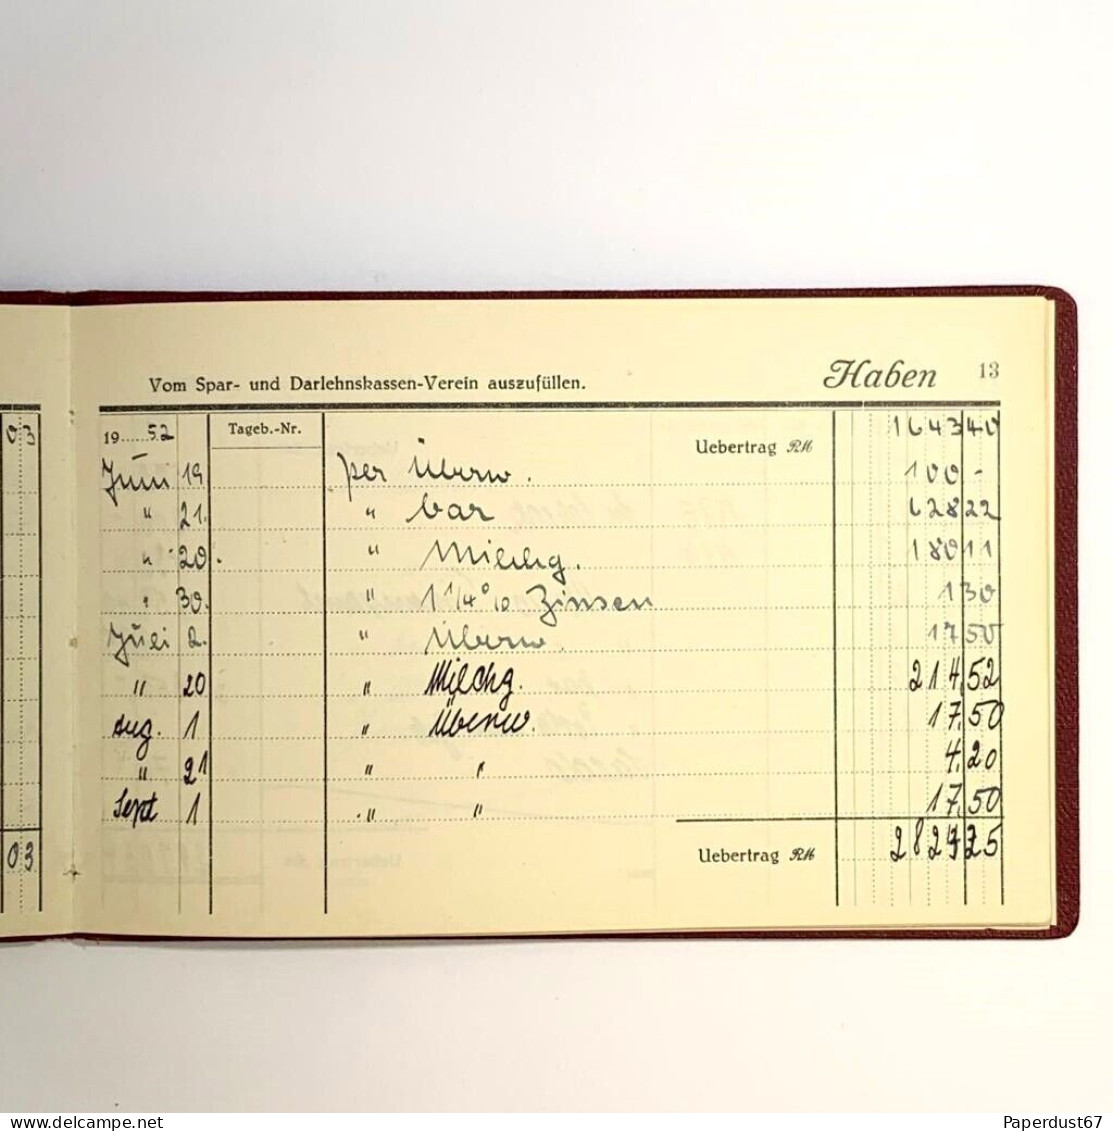 Vom Spar- und Darlehnskassen-Verein auszufüllen. Haben 13
03 19 52 Tageb.-Nr. Uebertrag RM 1643 40
Juni 19 per Überw. 100 -
" 21. " bar 628 22
" 20. " Milchg. 180 11
" 30. " 1 1/4 % Zinsen 1 30
Juli 2. " Überw. 17 50
" 20 " Milchg. 214,52
Aug. 1 " Überw. 17,50
" 21 " " 4,20
Sept 1 " " 17,50
03 Uebertrag RM 2824 25
Paperdust67
delcampe.net